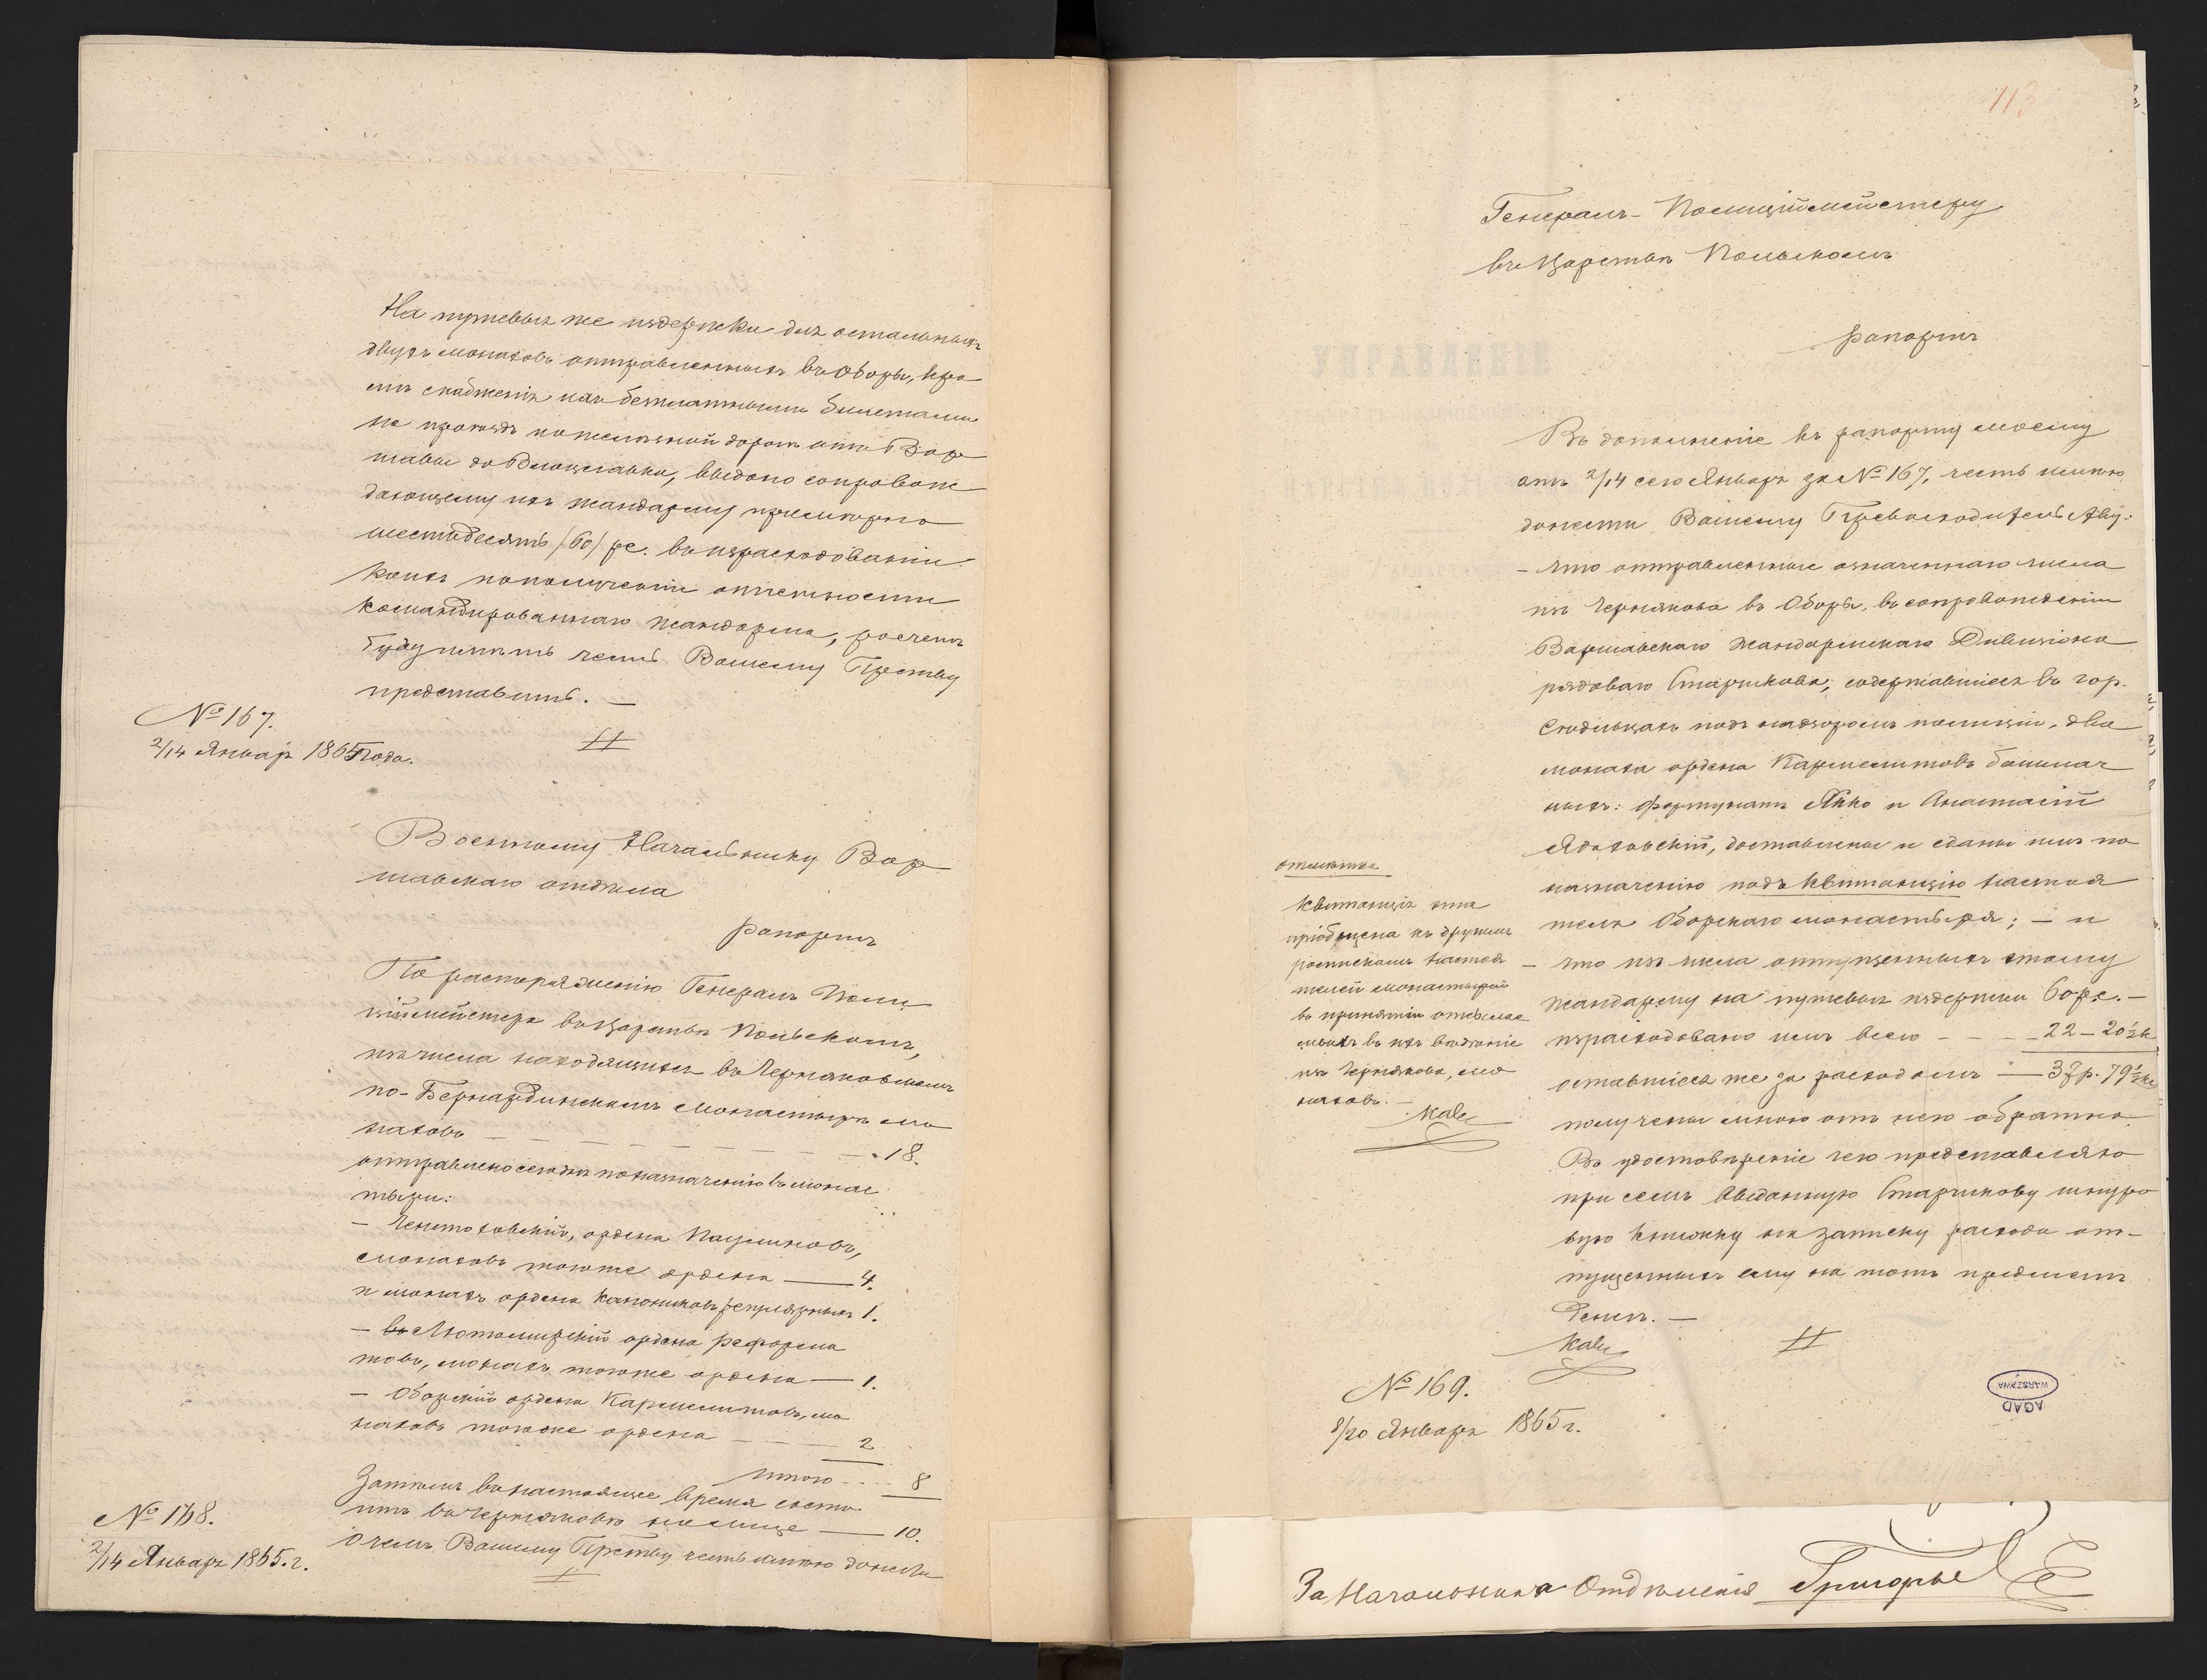 На путевыя же издержки для остальныхъ
двухъ монаховъ отправленныхъ въ Оборы, кро
мѣ снабженія ихъ безплатными билетами
на проѣздъ по желѣзной дорогѣ отъ Вар
шавы до Влоцлавка, выдано сопровож
дающему ихъ жандарму примѣрно
шестьдесятъ /60/ рс. въ израсходованіи
коихъ по полученіи отчетности
командированнаго жандарма, расчетъ
буду имѣть честь Вашему Пр-ству
представить. —
№ 167.
2/14 Января 1865 года.
Военному Начальнику Вар
шавскаго отдѣла
рапортъ
По распоряженію Генералъ Поли
ціймейстера въ Царствѣ Польскомъ,
изъ числа находящихся въ Черняковскомъ
по-Бернардинскомъ монастырѣ мо
наховъ — — — — — — 18.
отправлено сего дня по назначенію въ монас
тыри:
— Ченстоховскій, ордена Паулиновъ,
монаховъ тогоже ордена — 4.
и монахъ ордена Канониковъ регулярныхъ 1.
— въ Лютомирскій ордена Реформа
товъ, монахъ тогоже ордена — 1.
— Оборскій ордена Кармелитовъ, мо
наховъ тогоже ордена — — — 2
Итого . . . 8
Затѣмъ въ настоящее время состо
итъ въ Черняковѣ на лице — 10.
О чемъ Вашему Пр-ству честь имѣю донести
№ 168.
2/14 Января 1865 г.
113
Генералъ-Полиціймейстеру
въ Царствѣ Польскомъ
рапортъ
Въ дополненіе къ рапорту моему
отъ 2/14 сего Января за № 167, честь имѣю
донести Вашему Превосходительству:
— что отправленные означеннаго числа
изъ Чернякова въ Оборы, въ сопровожденіи
Варшавскаго Жандармскаго Дивизіона
рядоваго Старикова, содержавшіеся въ гор.
подъ надзоромъ полиціи, два
монаха ордена Кармелитовъ башмач
ныхъ: Фортунатъ Янко и Анастасій
Ядховскій, доставлены и сданы имъ по
назначенію подъ квитанцію настоя
теля Оборскаго монастыря; — и
— что изъ числа отпущенныхъ этому
жандарму на путевыя издержки 60 рс. —
израсходовано имъ всего — — — 22 — 20½ к
оставшіеся же за расходомъ — 37 р. 79½ к
получены мною отъ него обратно.
Въ удостовѣреніе чего представляю
при семъ выданную Старикову шнуро
вую книжку на записку расхода от-
пущенныхъ ему на тотъ предметъ
денегъ. —
№ 169.
8/20 Января 1865 г.
отмѣтка
Квитанція эта
пріобщена къ другимъ
роспискамъ настоя
телей монастырей
въ принятіи отсылае
мыхъ въ ихъ вѣденіе
изъ Чернякова, мо
наховъ. —
AGAD
WARSZAWA
За Начальника Отдѣленія